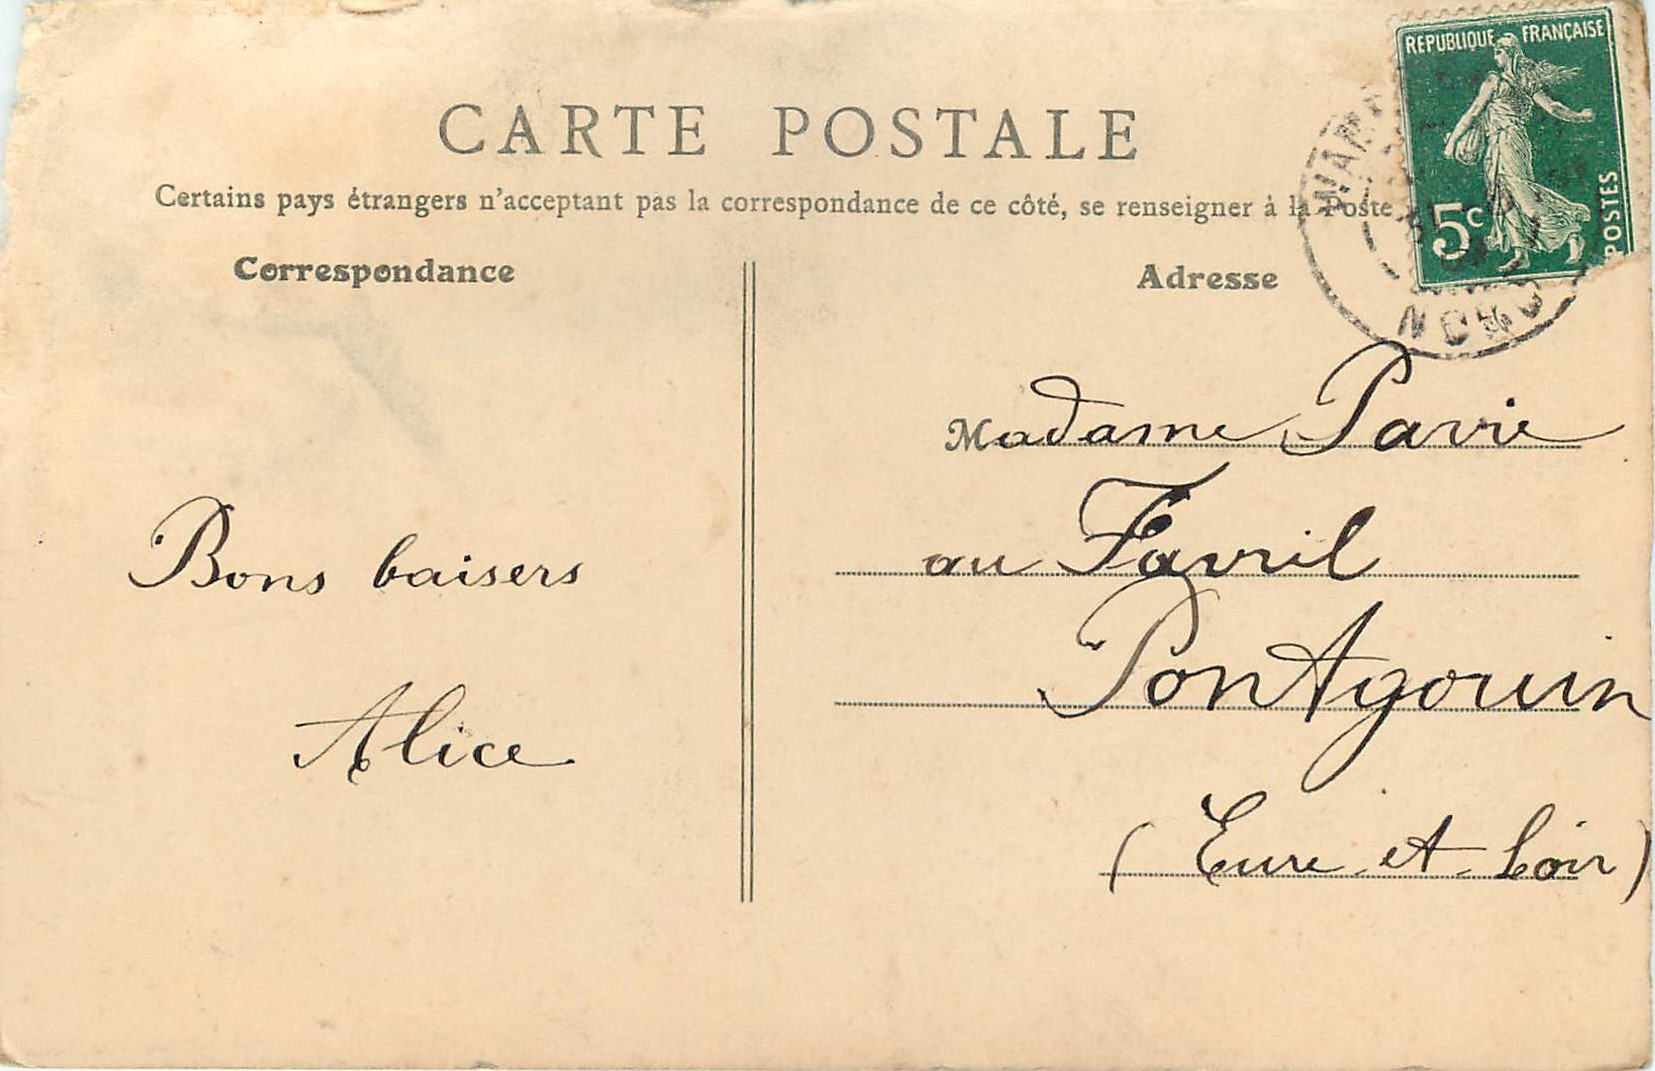 CARTE POSTALE
Certains pays étrangers n'acceptant pas la correspondance de ce côté, se renseigner à la Poste
Correspondance
Adresse
REPUBLIQUE FRANÇAISE
5c
POSTES
NORD
Madame Pavie
au Favril
Pontgouin
(Eure-et-Loir)
Bons baisers
Alice